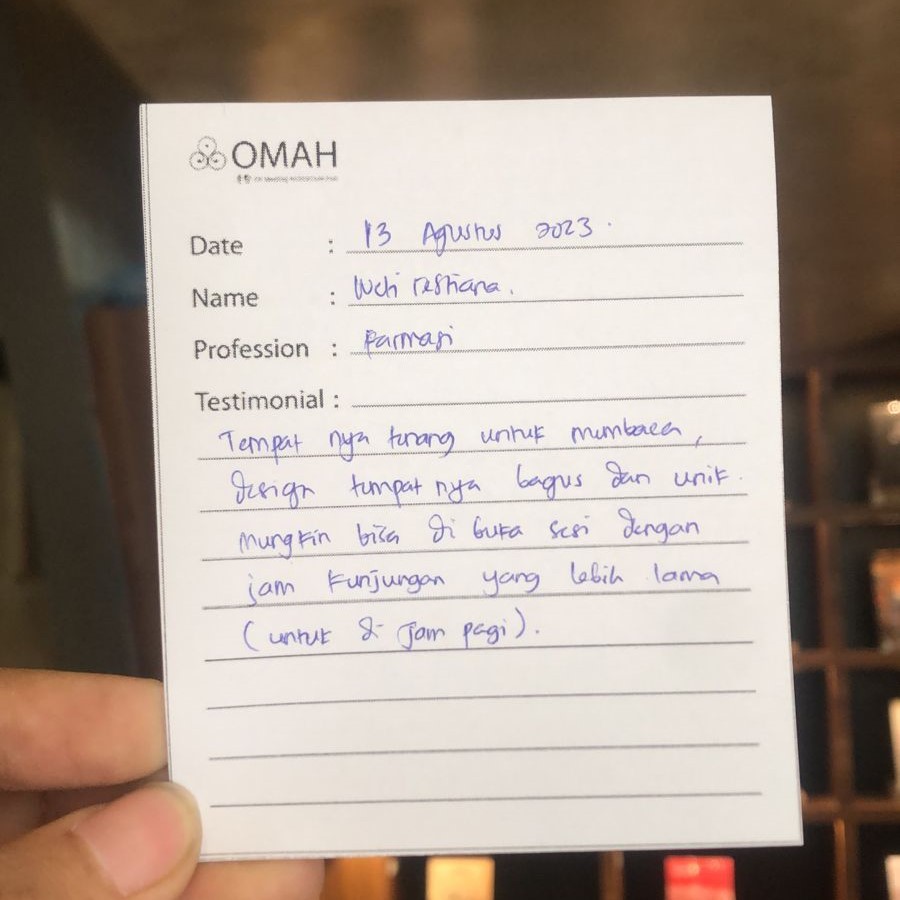 OMAH
Date : 13 Agustus 2023.
Name : Weti restiana.
Profession : Farmasi
Testimonial :
Tempat nya tenang untuk membaca,
design tempat nya bagus dan unik.
mungkin bisa di buka sesi dengan
jam kunjungan yang lebih lama
(untuk di jam pagi).